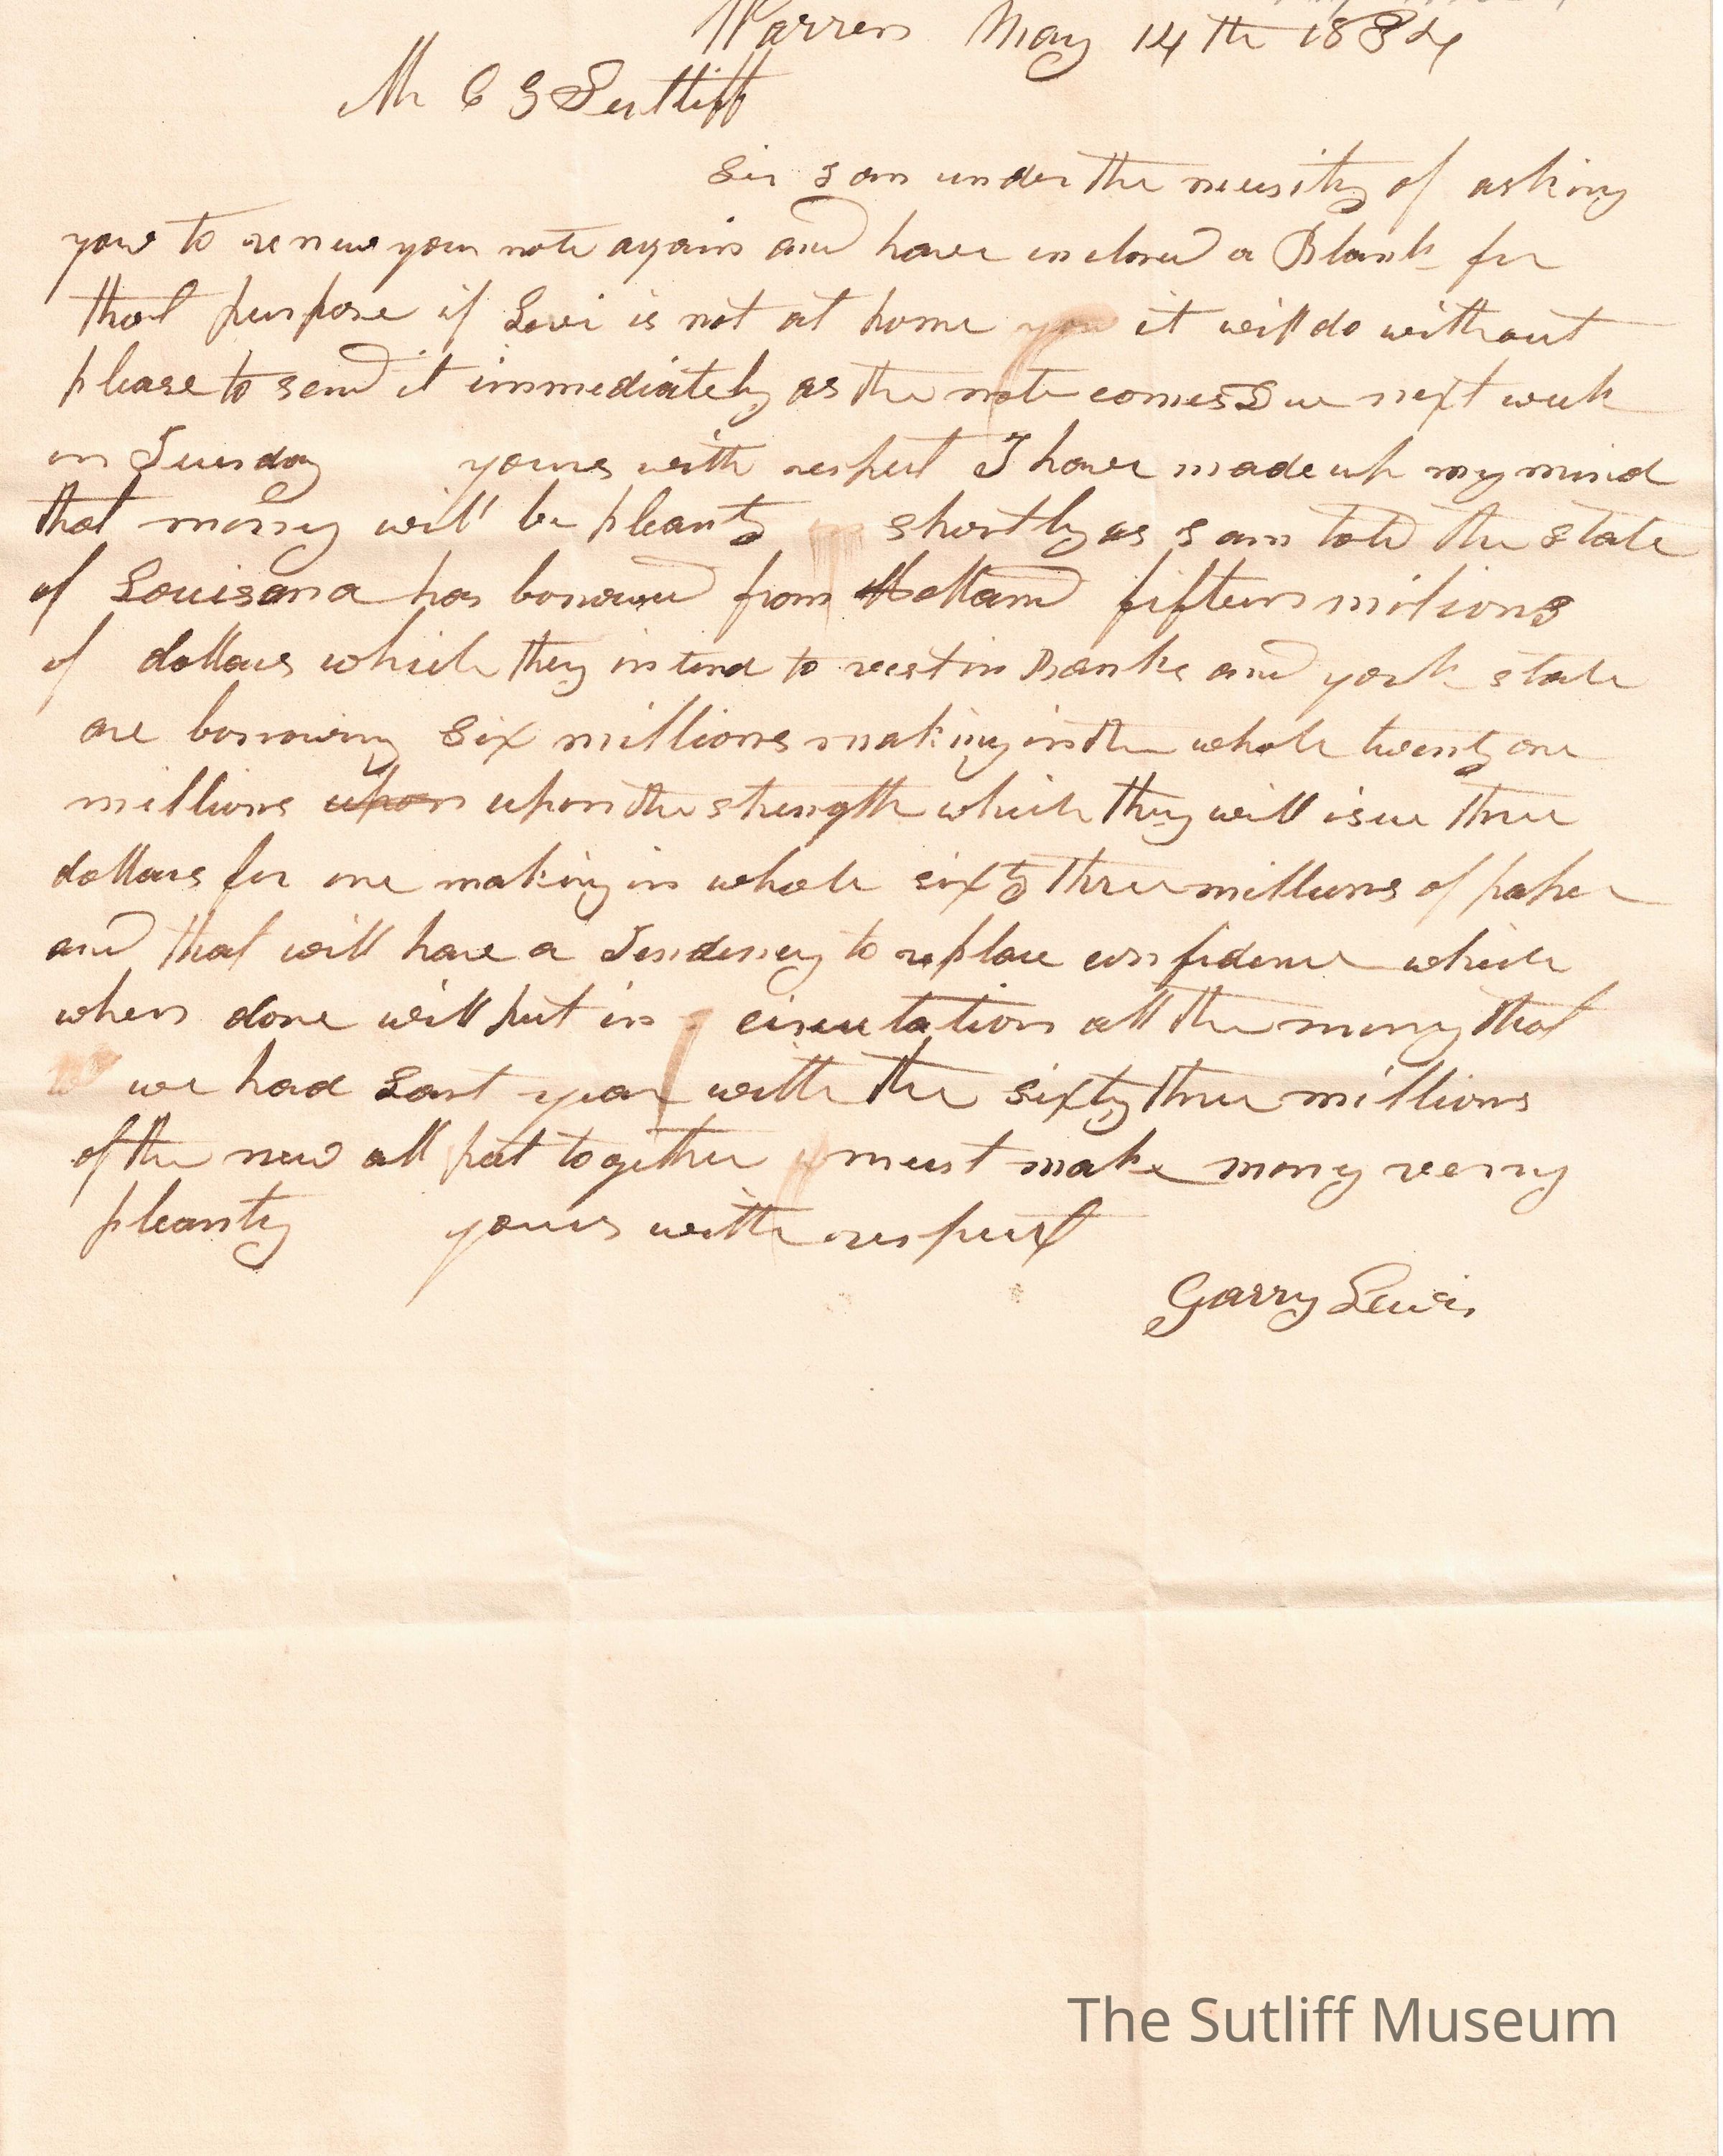 Warren May 14th 1834
Mr C G Sutliff
Sir I am under the necusity of asking
yow to renew your note again and have inclosed a Blank for
that purpose if Levi is not at home you it will do without
please to send it immediately as the note comes Due next week
on Tuesday yours with respect I have made up my mind
that monny will be pleanty shortly as I am told the state
of Louisana has borrowed from Holland fifteen milions
of dollars which they intend to vest in Banks and york state
are borrowing six millions making in the whole twenty one
millions upon upon the strength which they will isue three
dollars for one making in whole sixty three millions of paper
and that will have a Tendency to replace confidence which
when done will put in circulation all the money that
we had Last year with the sixty three millions
of the new all put together must make mony verry
pleanty yours with respect
Garry Lewis
The Sutliff Museum